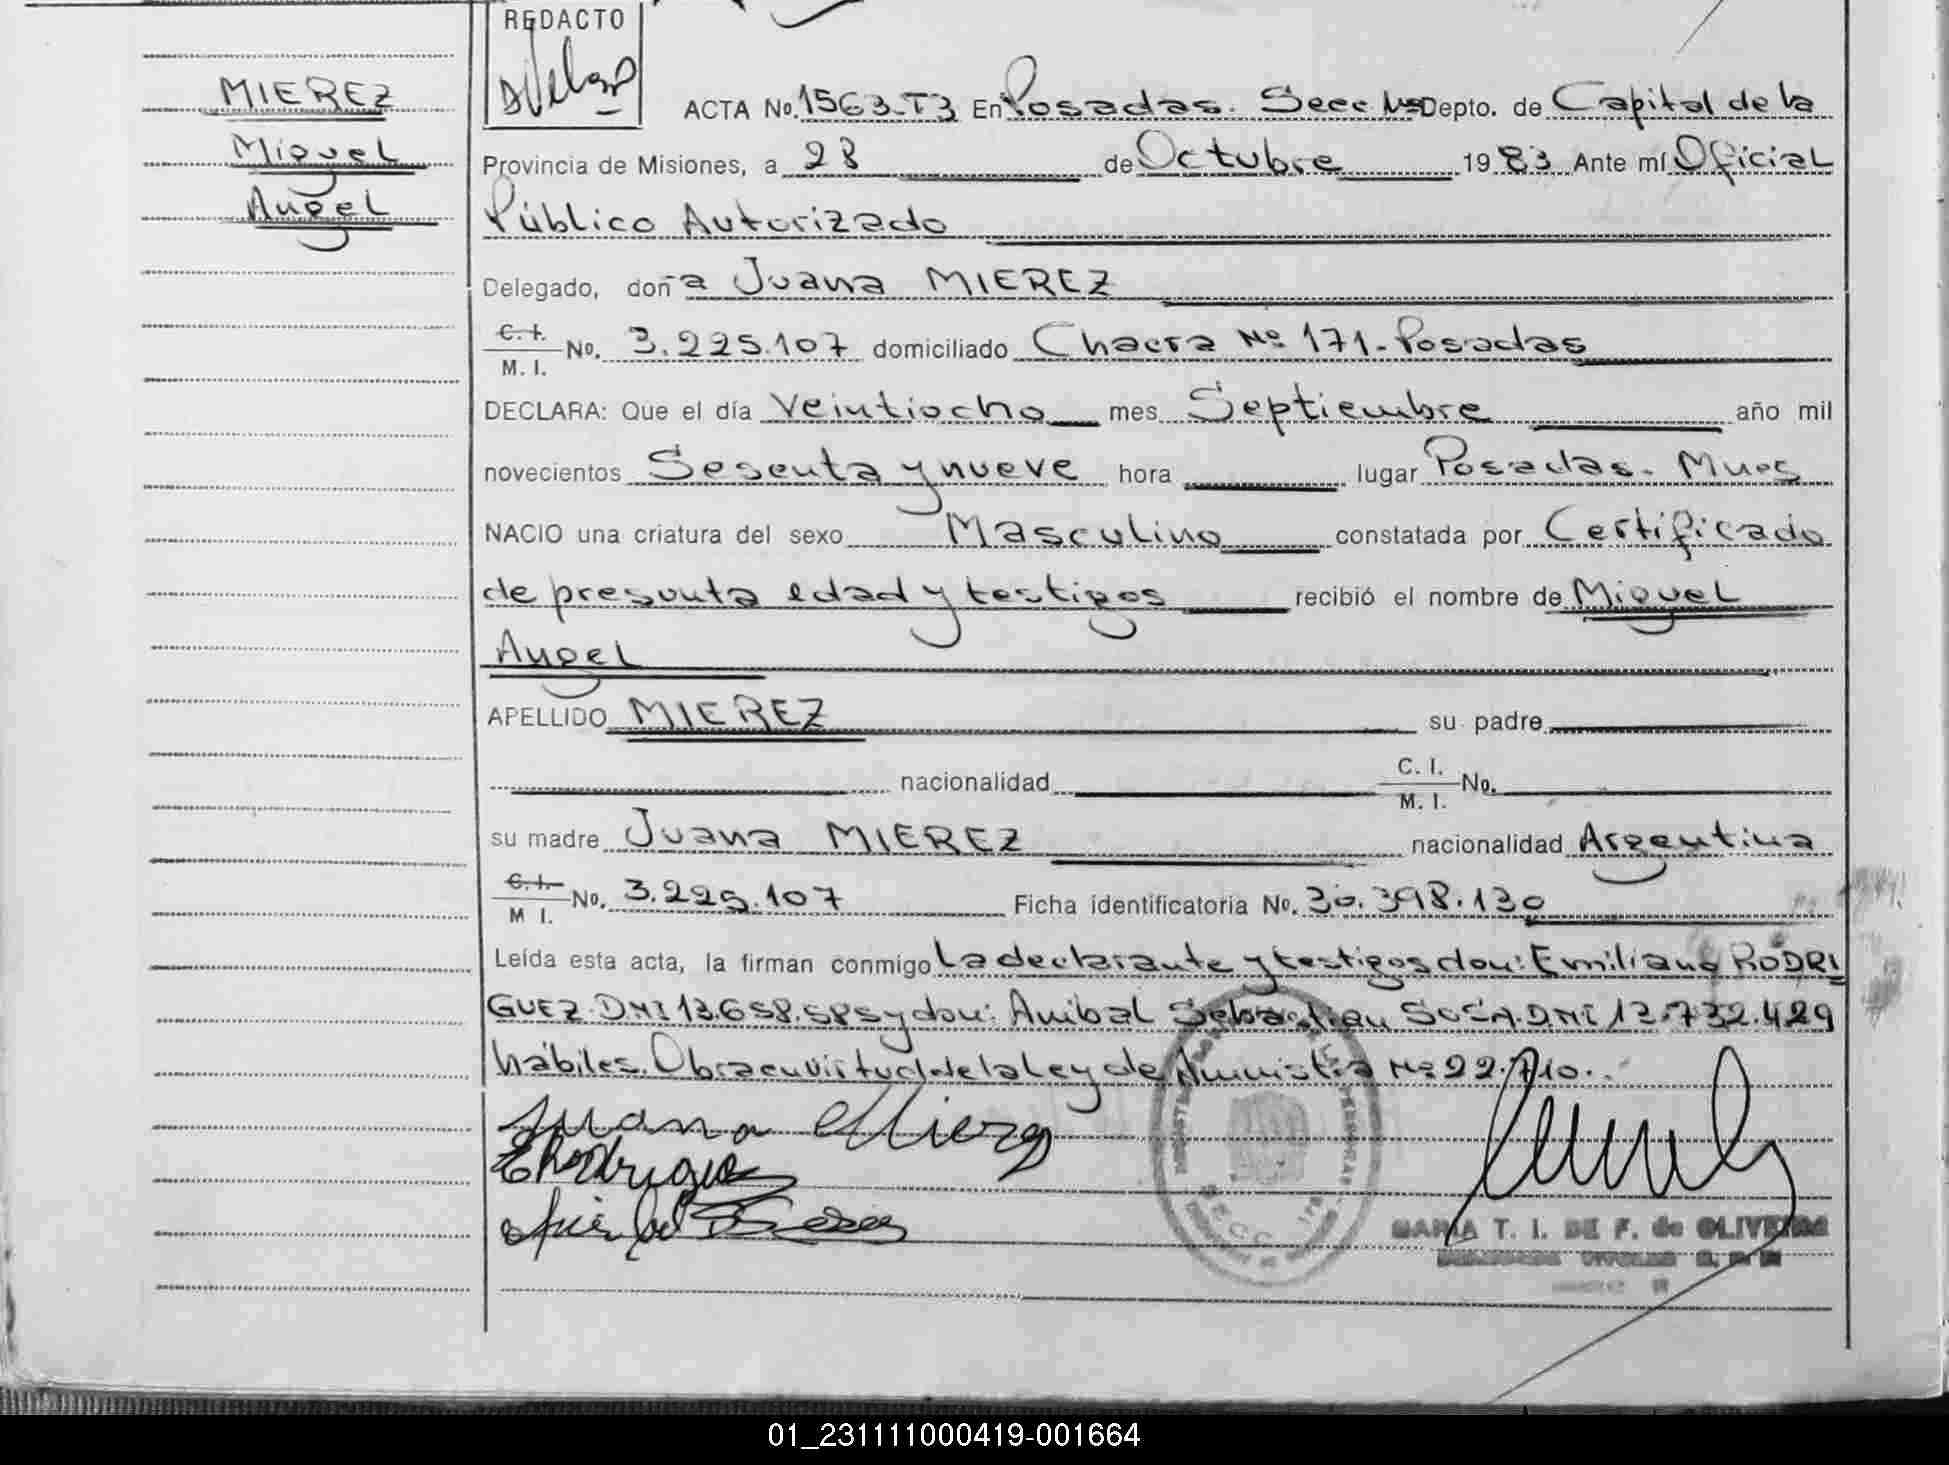 REDACTO
MIEREZ
Miguel
Angel
ACTA No. 1563-T3 En Posadas. Secc 1ra Depto. de Capital de la
Provincia de Misiones, a 28 de Octubre 1983 Ante mí Oficial
Público Autorizado
Delegado, doña Juana MIEREZ
C. I.
M. I. No. 3.225.107 domiciliado Chacra Nº 171-Posadas
DECLARA: Que el día Veintiocho mes Septiembre año mil
novecientos Sesenta y nueve hora lugar Posadas. Mnes
NACIO una criatura del sexo Masculino constatada por Certificado
de presunta edad y testigos recibió el nombre de Miguel
Angel
APELLIDO MIEREZ su padre
nacionalidad C. I.
M. I. No.
su madre Juana MIEREZ nacionalidad Argentina
C. I.
M I. No. 3.225.107 Ficha identificatoria No. 30.398.130
Leída esta acta, la firman conmigo La declarante y testigos don: Emiliano RODRI
GUEZ. DNI 13.658.585 y don: Anibal Sebastian SOSA. DNI 12.732.429
hábiles. Obra en virtud de la Ley de Amnistia Nº 22.710.
Juana Mierez
E Rodriguez
MARIA T. I. DE F. de OLIVEIRA
01_231111000419-001664